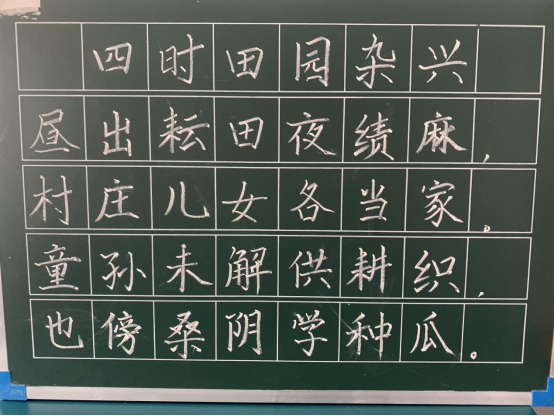 四时田园杂兴
昼出耘田夜绩麻，
村庄儿女各当家。
童孙未解供耕织，
也傍桑阴学种瓜。